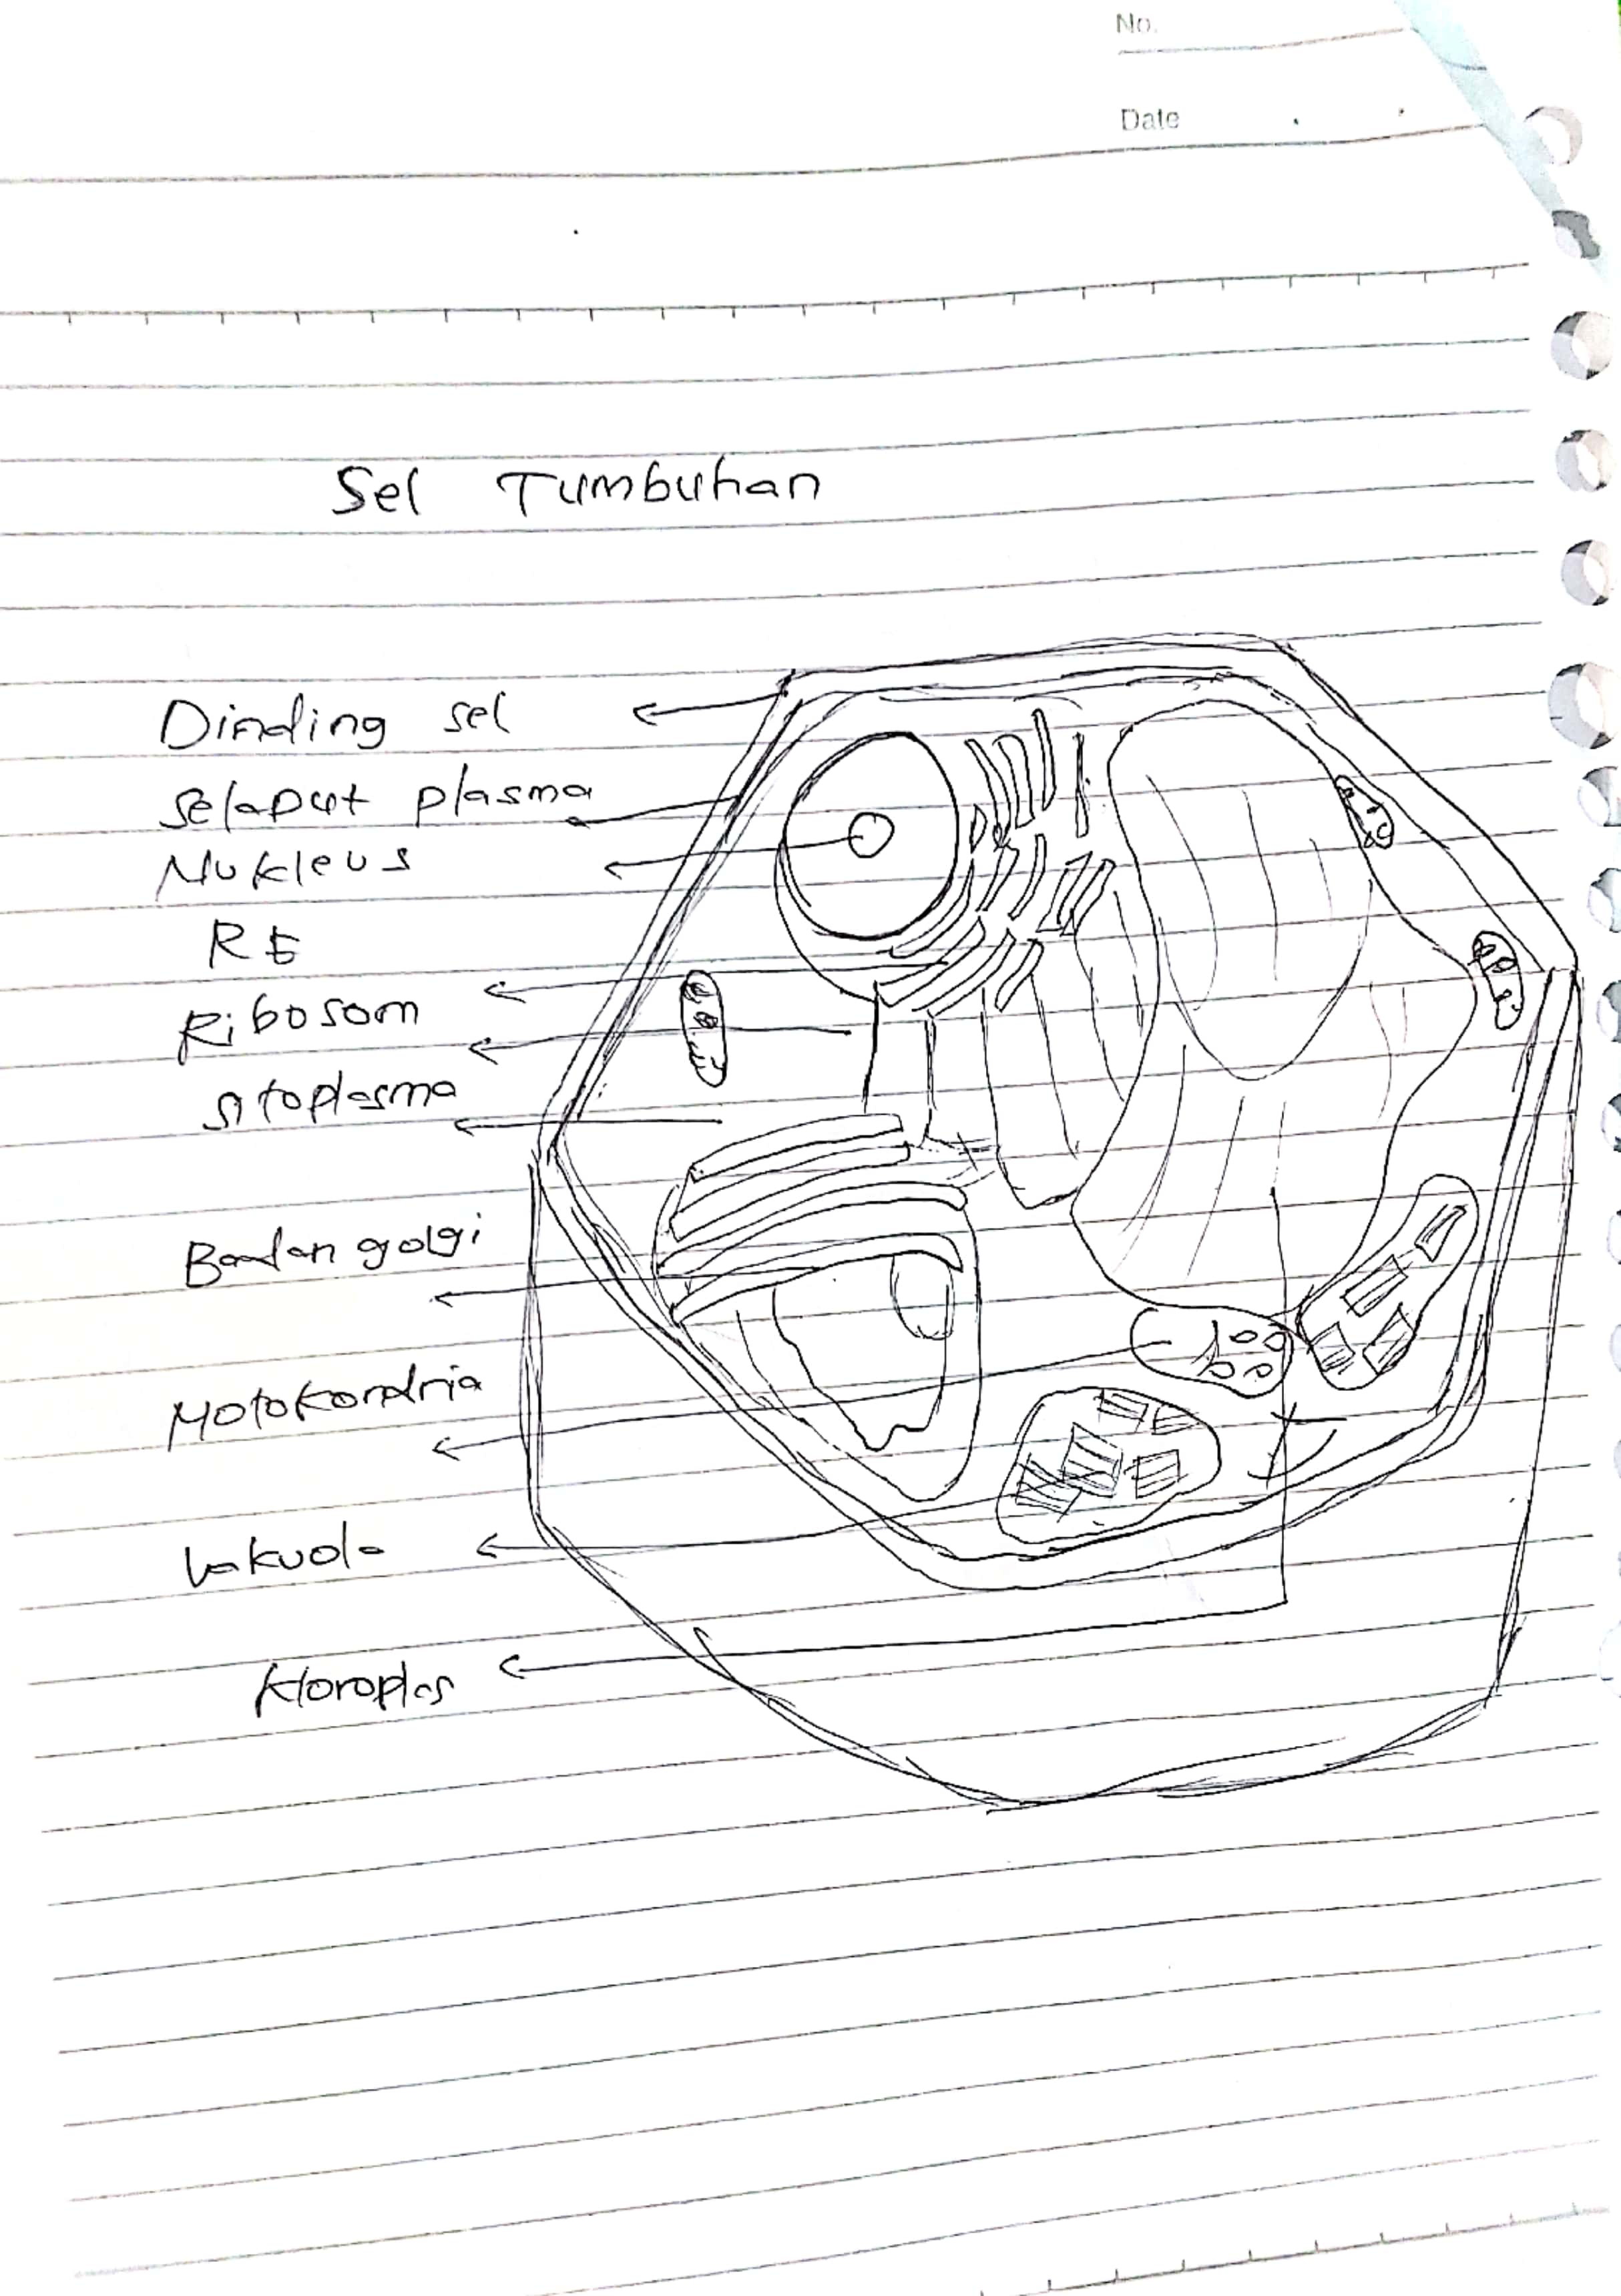 No.
Date
Sel Tumbuhan
Dinding sel
Selaput plasma
Nukleus
RE
Ribosom
Sitoplasma
Badan golgi
Motokondria
Vakuola
Kloroplas